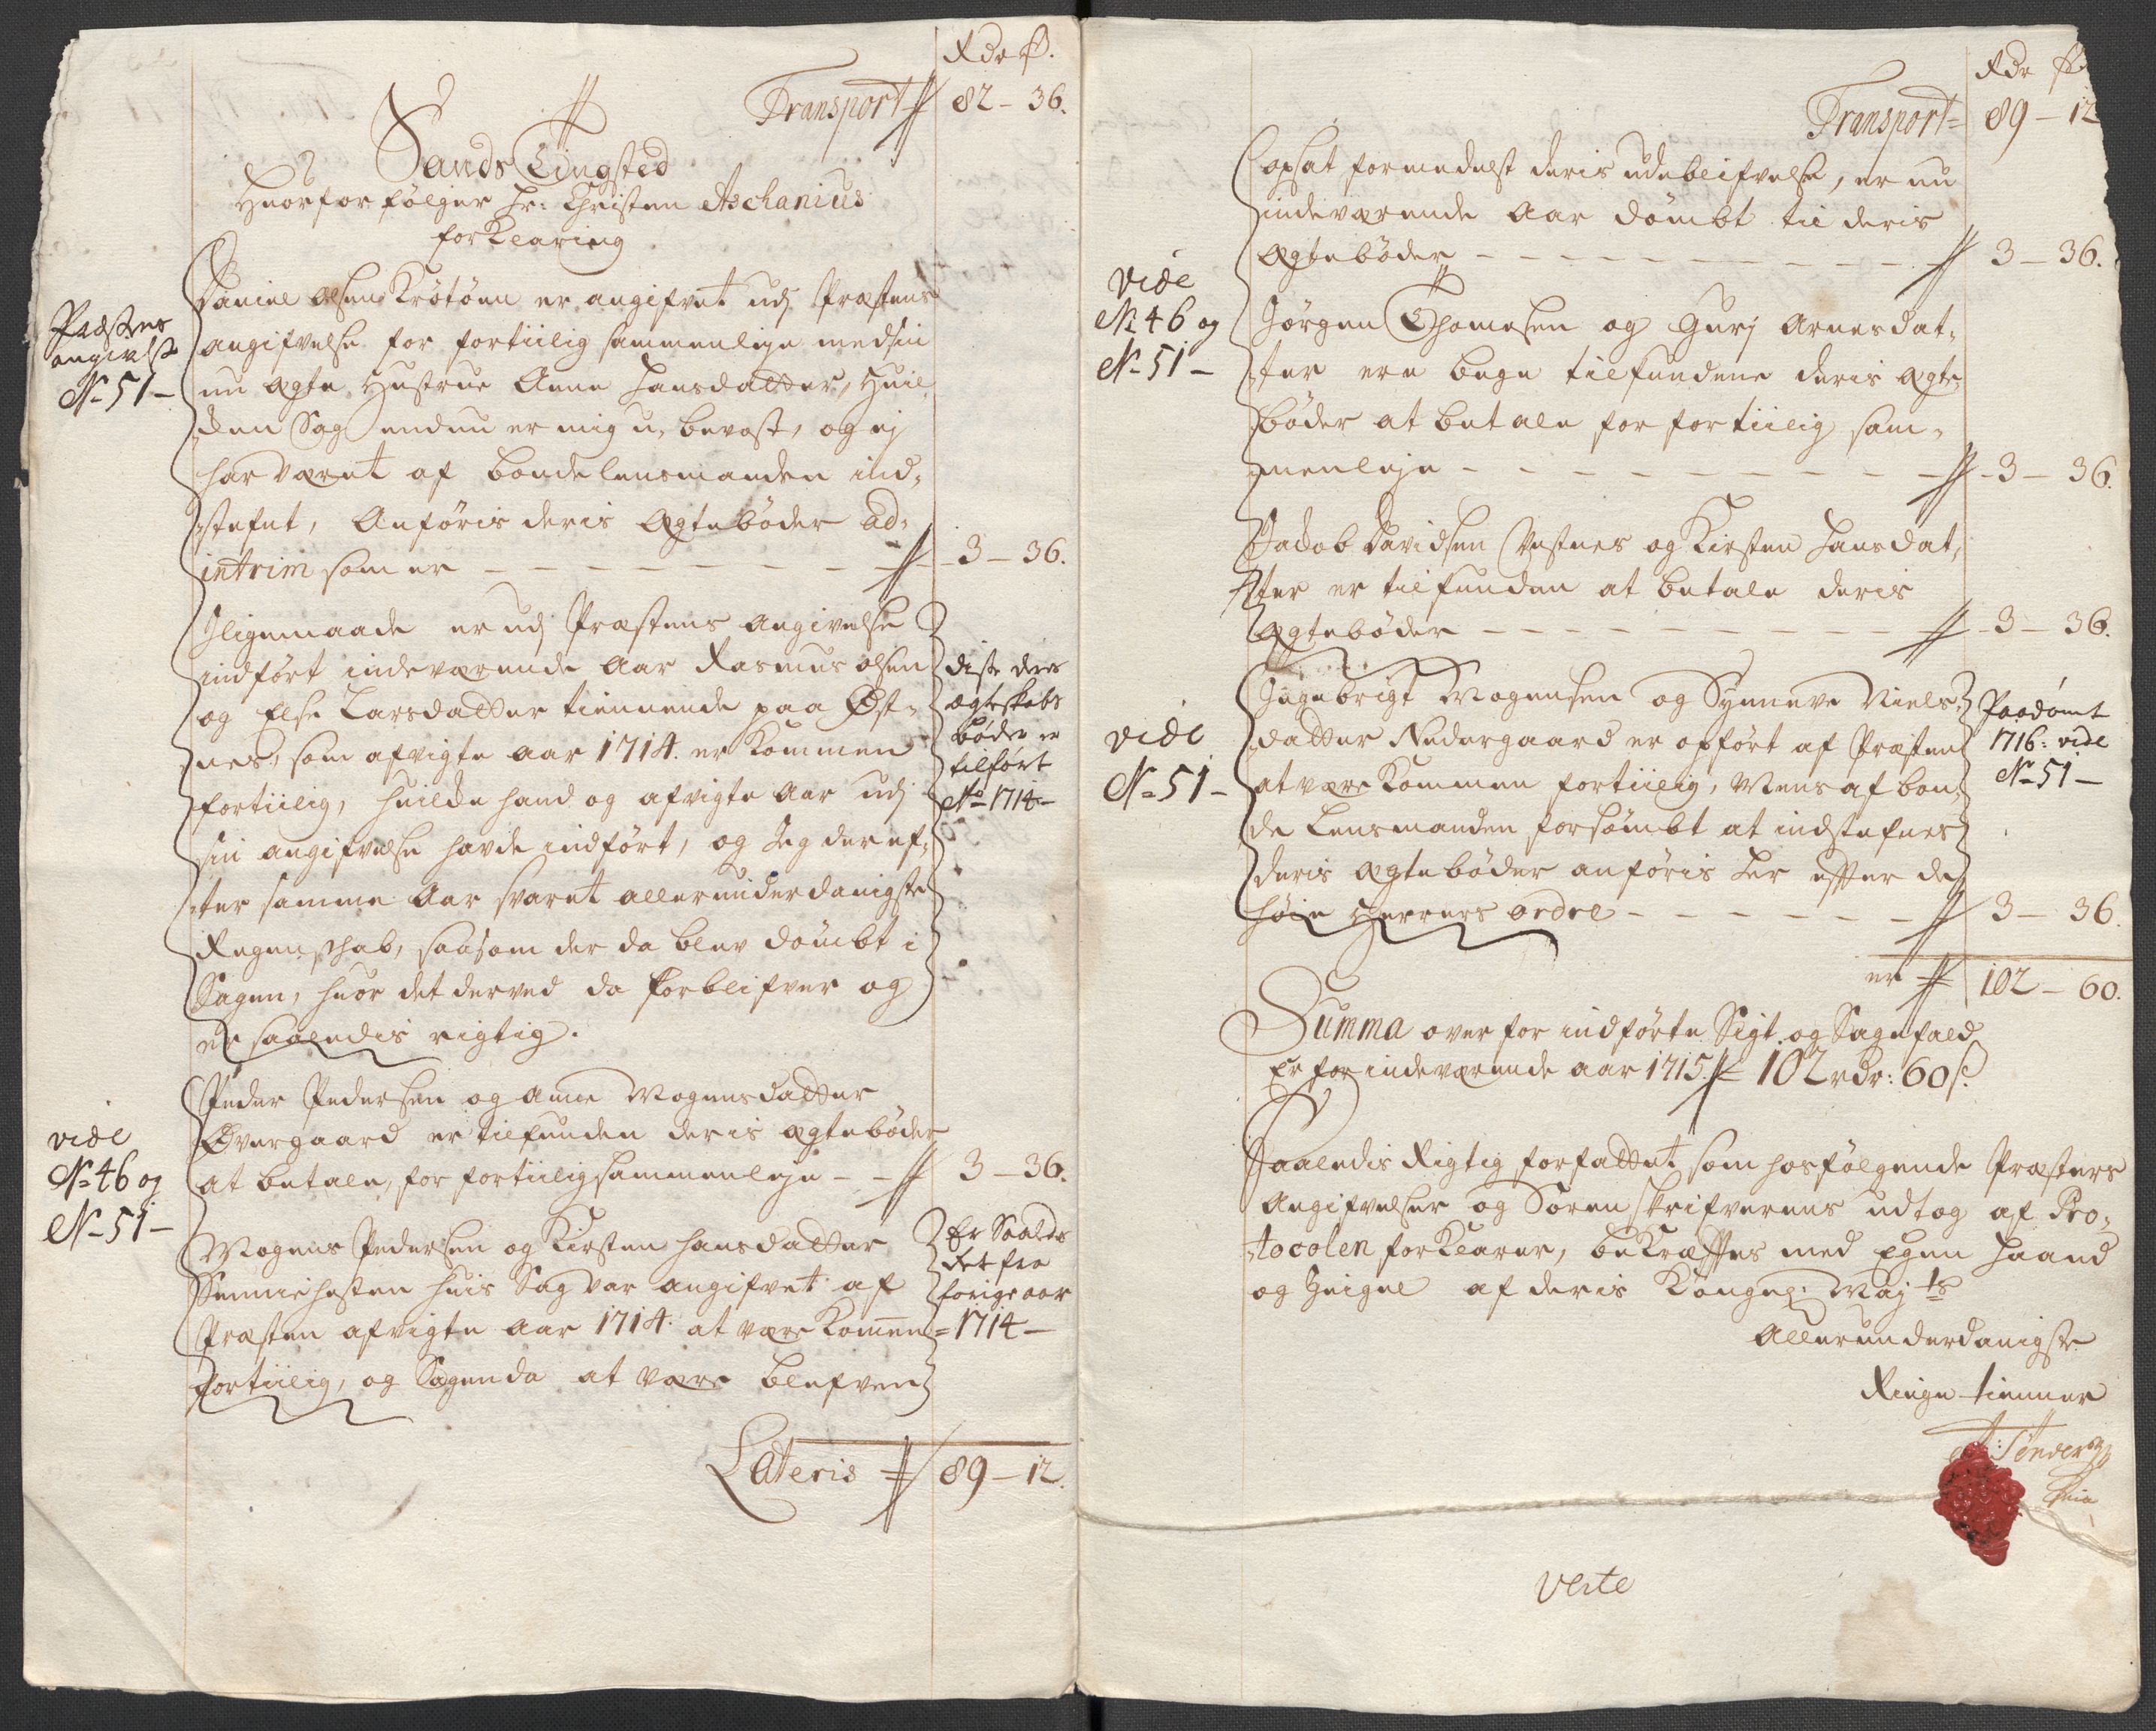 Rdr ß.
Transport 82 - 36.
Sands Tingsted
Huorfor følger Hr: Christen Aschanius
forklaring
Præstens
angivelse
No 51 -
Daniel Olsen Krøtøen er angifvet udj Præstens
angifvelse for fortiilig sammenleye med sin
nu ægte Hustrue Anne Hansdatter, Huil,
cken Sag endnu er mig u, bevost, og ej
har været af bonde lensmanden ind,
stefnt, Anføris deris Ægtebøder ad,
intrim som er - 3 - 36.
Jligemaade er udj Præstens Angivelse
indført indeværende Aar Rasmus Olsen
og Else Larsdatter tiennende paa Øst,
nes, som afvigte aar 1714. er kommen
fortiilig, huilcke hand og afvigte Aar udj
sin angifvelse hafde indført, og Jeg der ef,
ter samme Aar svaret allerunderdanigste
Regenschab, saasom der da blev dömbt i
Sagen, huor det derved da forblifver og
er saaledis rigtig.
diste deres
ægteskabs
bøder er
tilført
No 1714 -
vide
No 46 og
No 51 -
Peder Pedersen og Anne Mogensdatter
Øvergaard er tilfunden deris ægtebøder
at betale, for fortiilig sammenleye - 3 - 36.
Mogens Pedersen og Kirsten Hansdatter
Sennichesten huis Sag var angifvet af
Præsten afvigte Aar 1714. at være kommen
fortiilig, og Sagen da at være blefven
Er Saaledes
det fra
forige aar
1714 -
Lateris 89 - 12.
Rdr ß
Transport 89 - 12
opsat formedelst deris udeblifvelse, er nu
indeværende Aar dömbt til deris
ægtebøder - 3 - 36.
vide
No 46 og
No 51 -
Jørgen Thomesen og Gurj Arnesdat,
ter ere begge tilfundene deris ægte,
bøder at betale for fortiilig sam,
menleye - 3 - 36.
Jacob Davidsen Vestnes og Kirsten Hansdat,
ter er tilfunden at betale deris
Ægtebøder - 3 - 36.
vide
No 51 -
Ingebrigt Mogensen og Synneve Niels,
datter Nedergaard er opført af Præsten
at være kommen fortiilig, Mens af bon,
de Lensmanden forsømbt at indstefnes
deris ægtebøder anføris her efter de
høie Herrers ordre - 3 - 36.
Paadømt
1716: vide
No 51 -
er 102 - 60.
Summa over for indførte Sigt og Sagefald
er for indeværende aar 1715. 102 rdr: 60 ß.
Saaledis Rigtig forfattet som hosfølgende Præsters
Angifvelser og Sorenskrifverens udtog af Pro,
tocolen forklarer, bekræfftes med Egen Haand
og Zeignel af deris Kongel: Maj ts
Allerunderdanigste
Ringe tienner
Tønder
verte